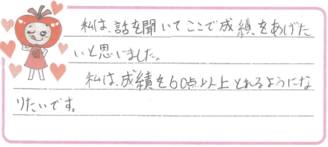 私は、話を聞いてここで成績をあげた
いと思いました。
私は、成績を60点以上とれるようにな
りたいです。